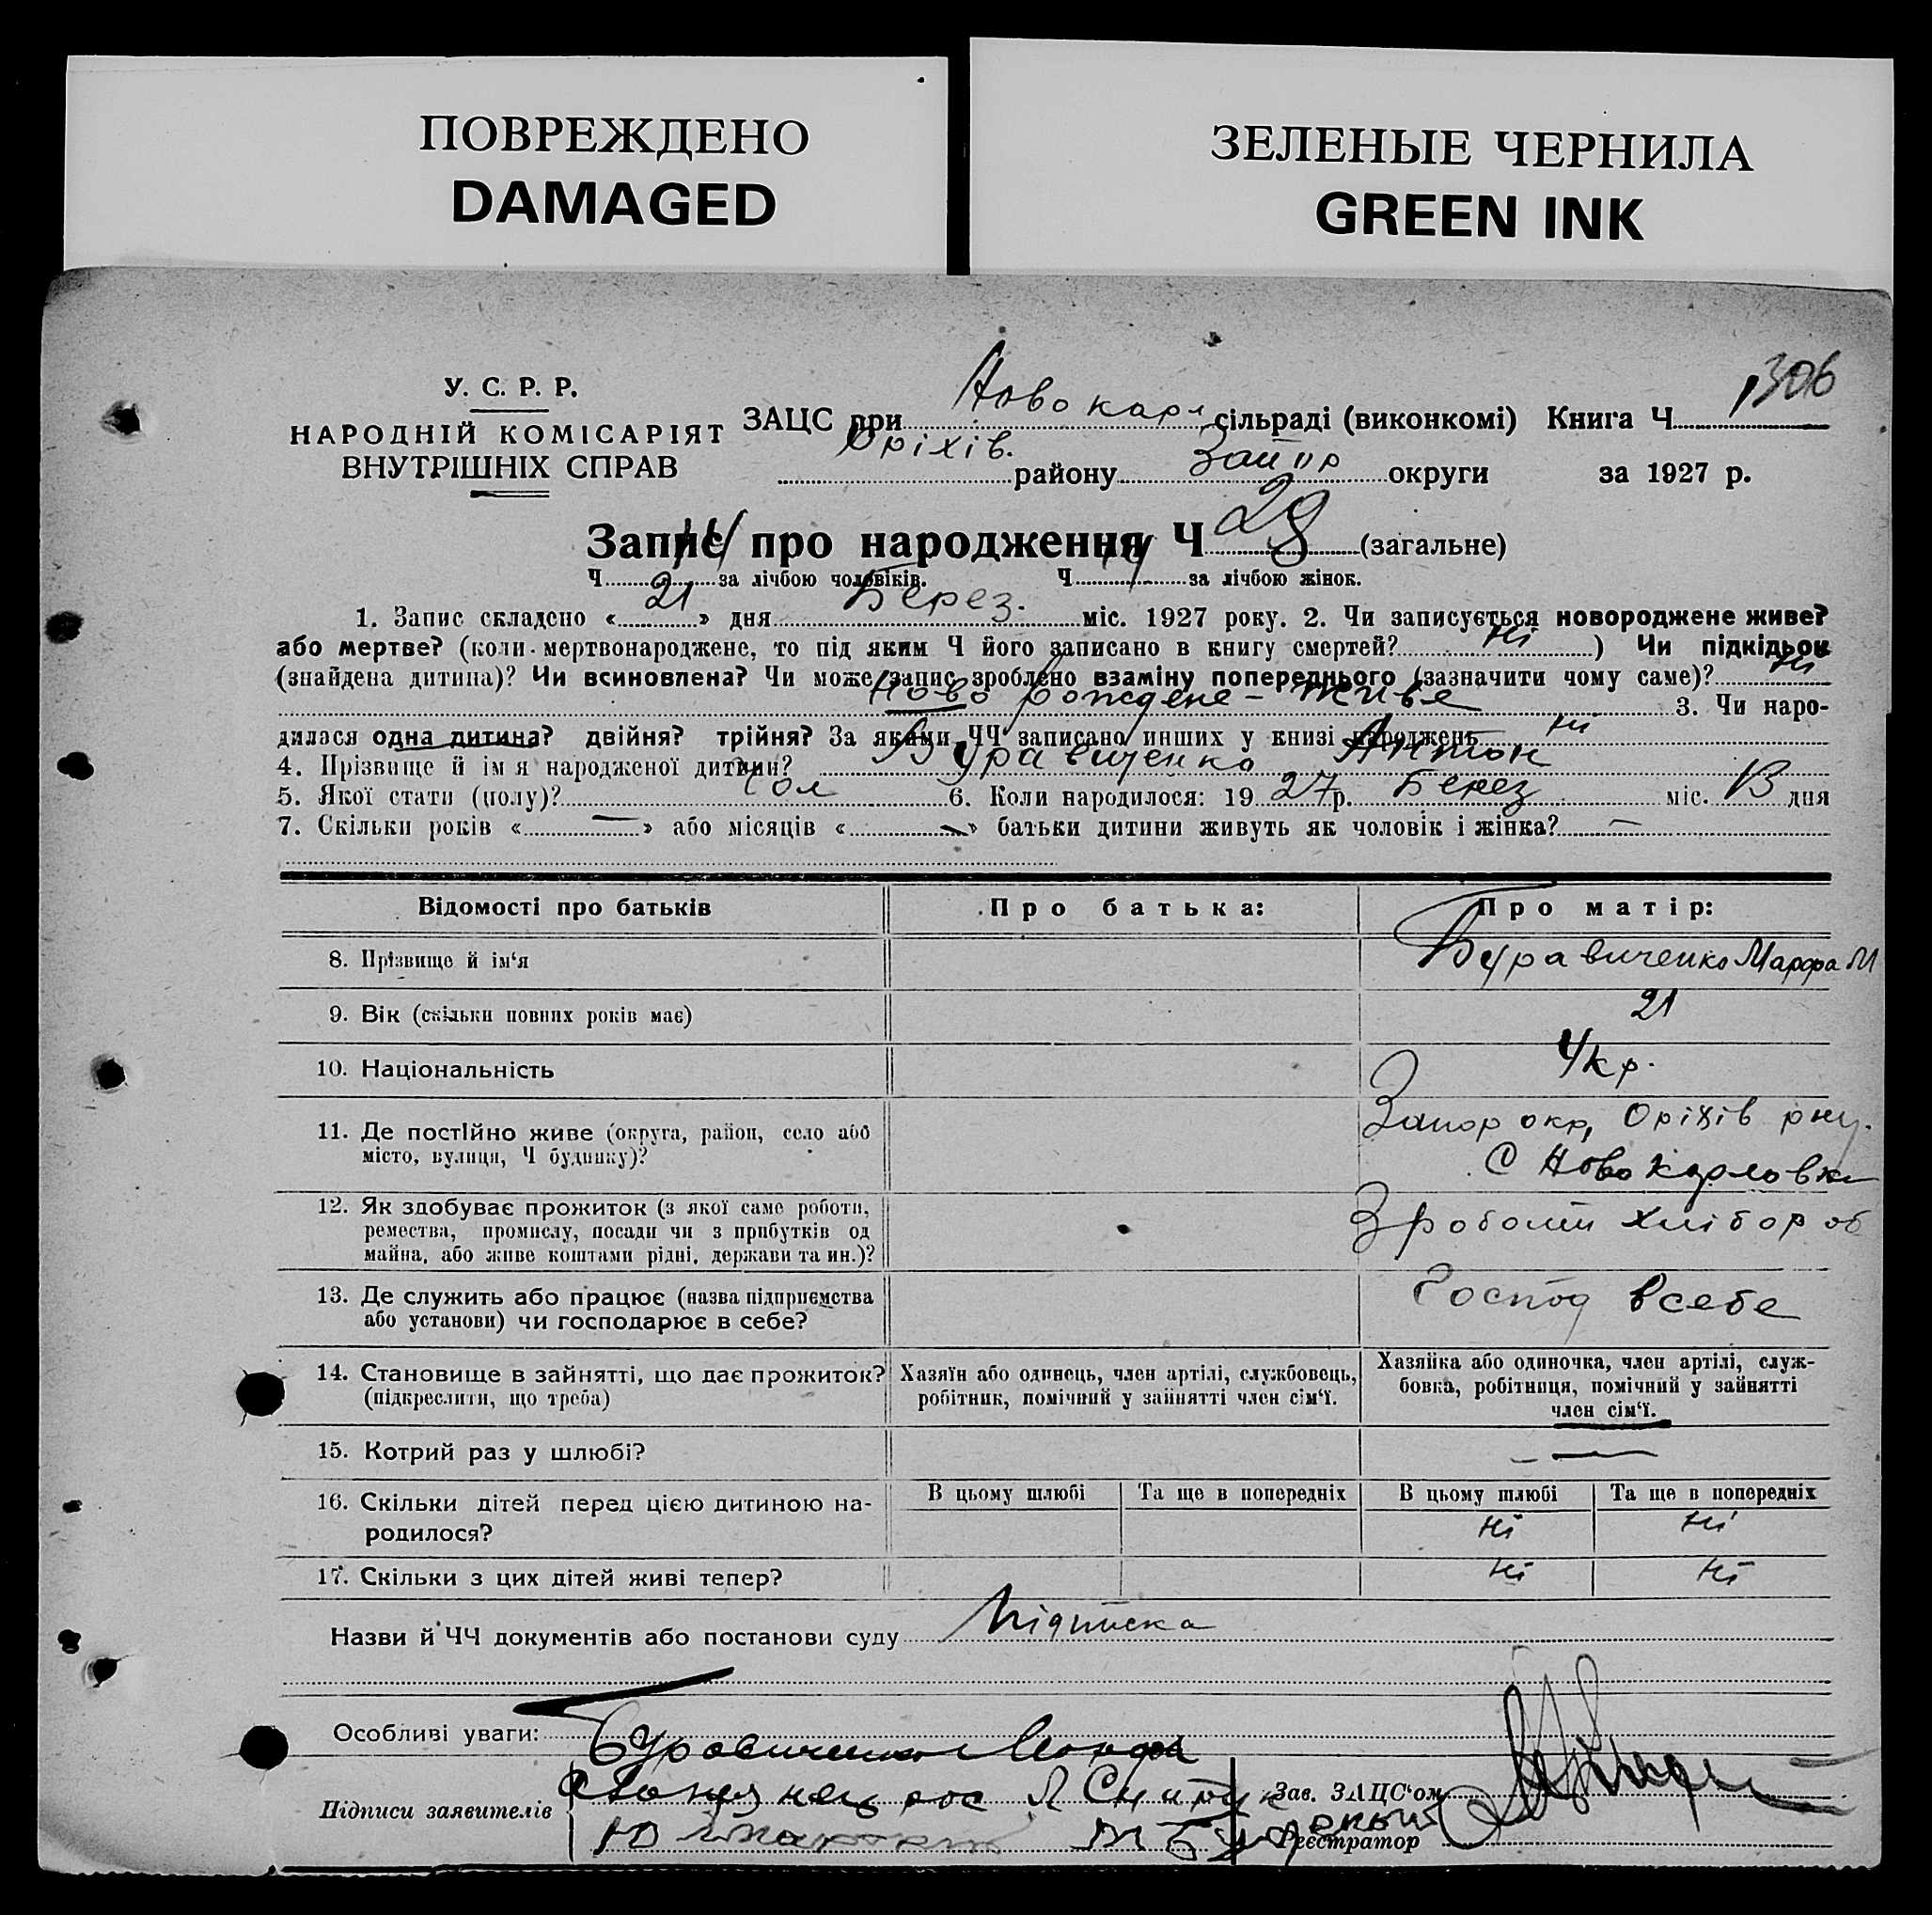 ПОВРЕЖДЕНО
DAMAGED
ЗЕЛЕНЫЕ ЧЕРНИЛА
GREEN INK
306
У. С. Р. Р.
НАРОДНІЙ КОМІСАРІЯТ
ВНУТРІШНІХ СПРАВ
ЗАЦС при Новокарл сільраді (виконкомі) Книга Ч
Оріхів. району Запор округи за 1927 р.
Запис про народження Ч 28 (загальне)
Ч 14 за лічбою чоловіків. Ч 14 за лічбою жінок.
1. Запис складено « 21 » дня Берез. міс. 1927 року. 2. Чи записується новороджене живе?
або мертве? (коли мертвонароджене, то під яким Ч його записано в книгу смертей? Ні ) Чи підкідьок
(знайдена дитина)? Чи всиновлена? Чи може запис зроблено взаміну попереднього (зазначити чому саме)? Ні
Ново рождене - живе 3. Чи наро-
дилася одна дитина? двійня? трійня? За якими ЧЧ записано инших у книзі народжень Ні
4. Прізвище й ім я народженої дитини? Буравиченко Антон
5. Якої стати (полу)? Чол 6. Коли народилося: 19 27 р. Берез міс. 13 дня
7. Скільки років « — » або місяців « — » батьки дитини живуть як чоловік і жінка? —
Відомості про батьків Про батька: Про матір:
8. Прізвище й ім‘я Буравиченко Марфа М
9. Вік (скільки повних років має) 21
10. Національність Укр.
11. Де постійно живе (округа, район, село або Запор окр, Оріхів рну.
місто, вулиця, Ч будинку)? С Ново Карловки
12. Як здобуває прожиток (з якої саме роботи, З роботи хлібороб
ремества, промислу, посади чи з прибутків од
майна, або живе коштами рідні, держави та ин.)?
13. Де служить або працює (назва підприємства Господ в себе
або установи) чи господарює в себе?
14. Становище в зайнятті, що дає прожиток? Хазяїн або одинець, член артілі, службовець, Хазяйка або одиночка, член артілі, служ-
(підкреслити, що треба) робітник, помічний у зайнятті член сім‘ї. бовка, робітниця, помічний у зайнятті
член сім‘ї.
15. Котрий раз у шлюбі? —
16. Скільки дітей перед цією дитиною на- В цьому шлюбі Та ще в попередніх В цьому шлюбі Та ще в попередніх
родилося? Ні Ні
17. Скільки з цих дітей живі тепер? Ні Ні
Назви й ЧЧ документів або постанови суду Підписка
Особливі уваги:
Буравиченко Марфа
Підписи заявителів
Зав. ЗАЦС‘ом
Реєстратор